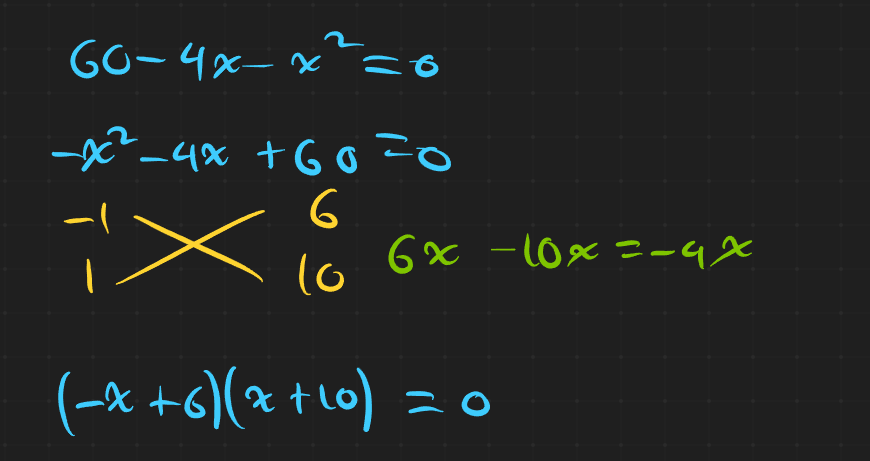 60 - 4x - x² = 0
-x² - 4x + 60 = 0
-1 6
1 10
6x - 10x = -4x
(-x + 6)(x + 10) = 0